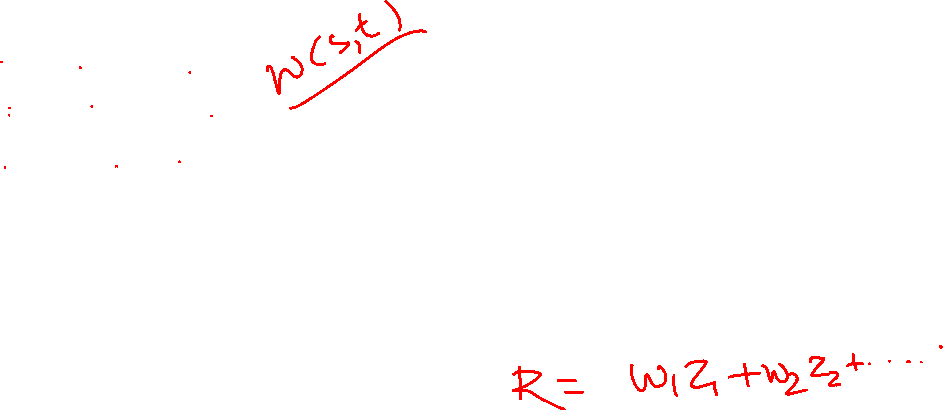 w(s,t)
R = w₁z₁ + w₂z₂ + .....